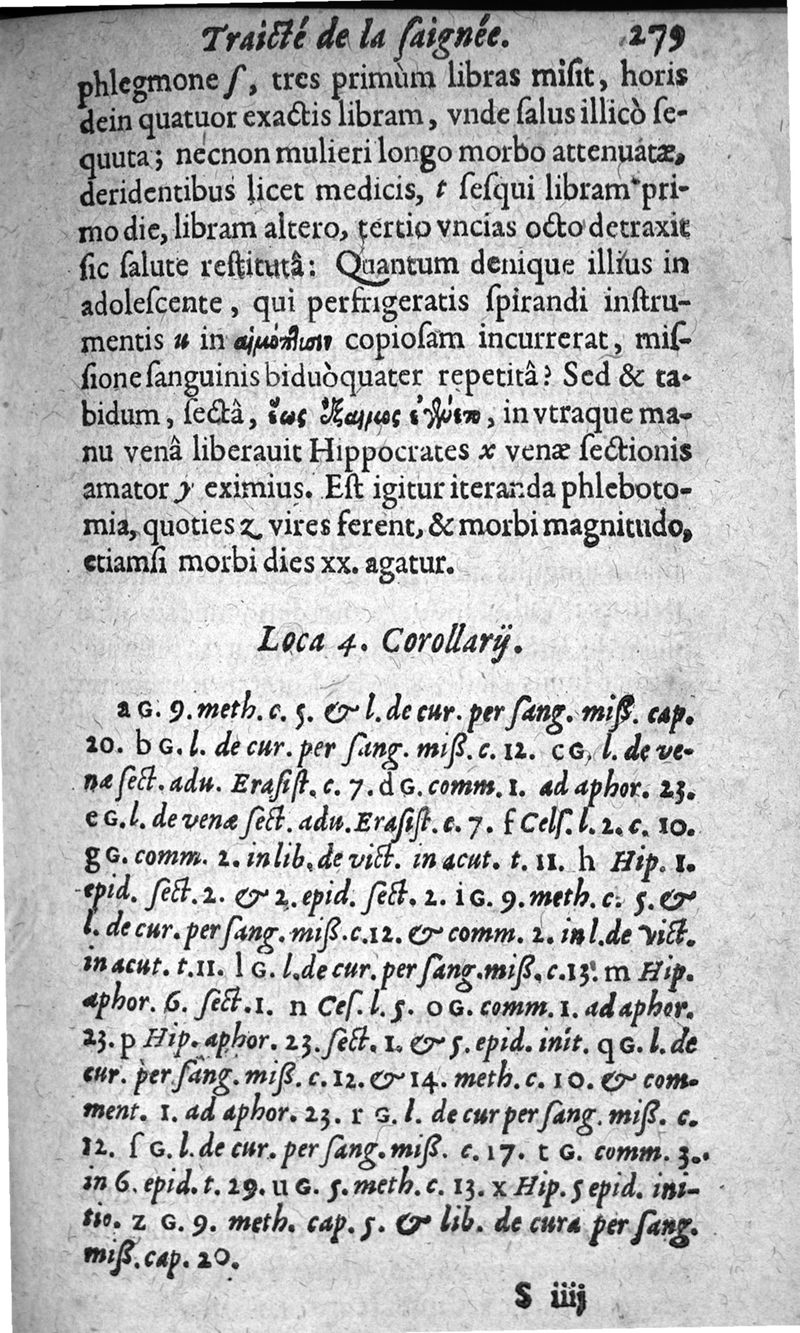 Traicté de la ſaignée. 279
phlegmone ſ, tres primùm libras miſit, horis
dein quatuor exactis libram, vnde ſalus illicò ſe-
quuta; necnon mulieri longo morbo attenuatæ,
deridentibus licet medicis, t ſeſqui libram pri-
mo die, libram altero, tertio vncias octo detraxit
ſic ſalute reſtitutâ: Quantum denique illius in
adoleſcente, qui perfrigeratis ſpirandi inſtru-
mentis u in copioſam incurrerat, miſ-
ſione ſanguinis biduò quater repetitâ? Sed & ta-
bidum, ſectâ, in vtraque ma-
nu venâ liberauit Hippocrates x venæ ſectionis
amator y eximius. Eſt igitur iteranda phleboto-
mia, quoties z vires ferent, & morbi magnitudo,
etiamſi morbi dies xx. agatur.
Loca 4. Corollarij.
a G. 9. meth. c. 5. & l. de cur. per ſang. miß. cap.
20. b G. l. de cur. per ſang. miß. c. 12. c G, l. de ve-
næ ſect. adu. Eraſiſt. c. 7. d G. comm. 1. ad aphor. 23.
e G. l. de venæ ſect. adu. Eraſiſt. c. 7. f Celſ. l. 2. c. 10.
g G. comm. 2. in lib. de vict. in acut. t. 11. h Hip. 1.
epid. ſect. 2. & 2. epid. ſect. 2. i G. 9. meth. c. 5. &
l. de cur. per ſang. miß. c. 12. & comm. 2. in l. de vict.
in acut. t. 11. l G. l. de cur. per ſang. miß. c. 13. m Hip.
aphor. 6. ſect. 1. n Ceſ. l. 5. o G. comm. 1. ad aphor.
23. p Hip. aphor. 23. ſect. 1. & 5. epid. init. q G. l. de
cur. per ſang. miß. c. 12. & 14. meth. c. 10. & com-
ment. 1. ad aphor. 23. r G. l. de cur per ſang. miß. c.
12. ſ G. l. de cur. per ſang. miß. c. 17. t G. comm. 3.
in 6. epid. t. 29. u G. 5. meth. c. 13. x Hip. 5 epid. ini-
tio. z G. 9. meth. cap. 5. & lib. de cura per ſang.
miß. cap. 20.
S iiij